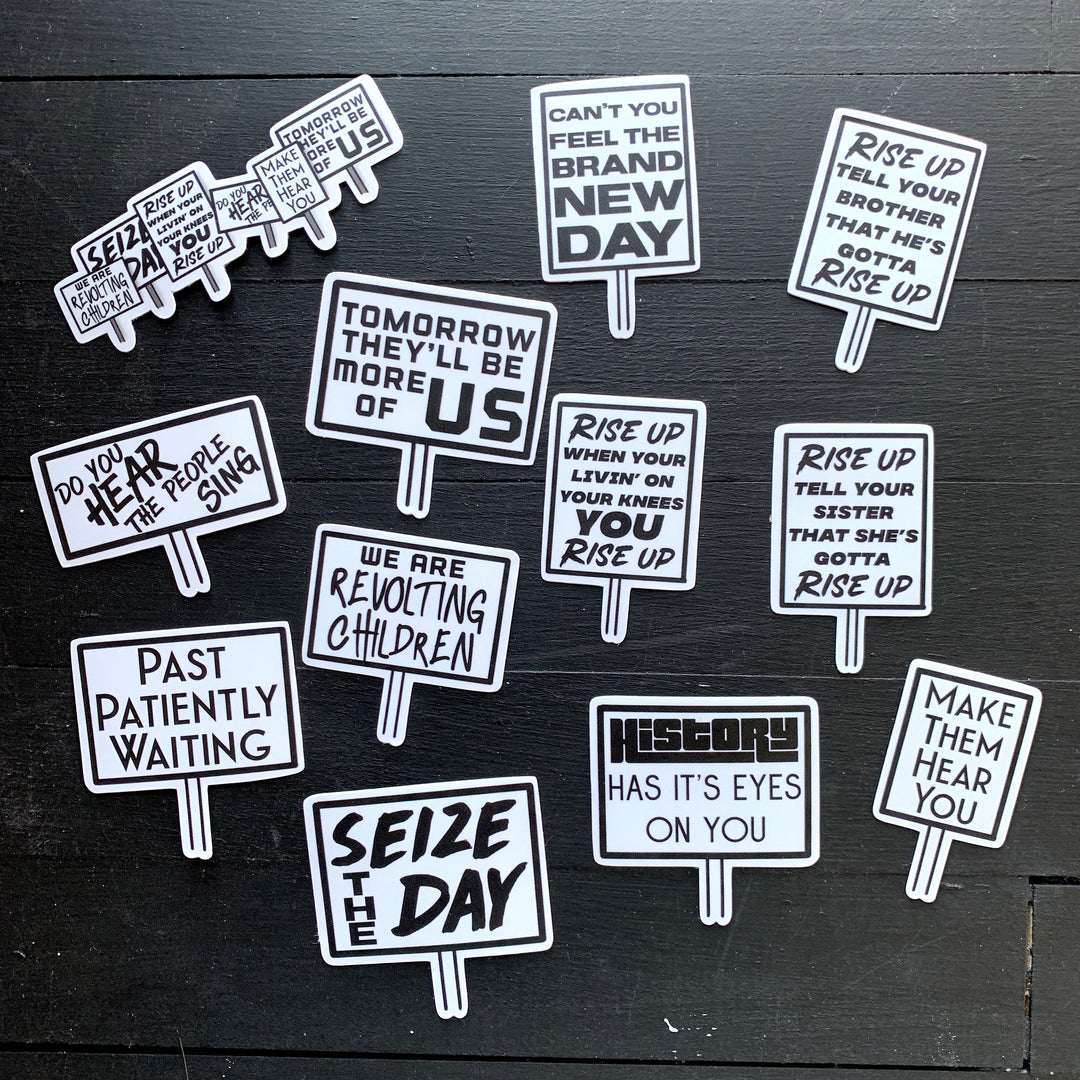 WE ARE
REVOLTING
CHILDREN
SEIZE
DAY
RISE UP
WHEN YOUR
LIVIN' ON
YOUR KNEES
YOU
RISE UP
DO YOU
HEAR
THE
MAKE
THEM
HEAR
YOU
TOMORROW
THEY'LL BE
MORE
OF US
CAN'T YOU
FEEL THE
BRAND
NEW
DAY
RISE UP
TELL YOUR
BROTHER
THAT HE'S
GOTTA
RISE UP
TOMORROW
THEY'LL BE
MORE
OF US
DO YOU
HEAR
THE PEOPLE
SING
RISE UP
WHEN YOUR
LIVIN' ON
YOUR KNEES
YOU
RISE UP
RISE UP
TELL YOUR
SISTER
THAT SHE'S
GOTTA
RISE UP
WE ARE
REVOLTING
CHILDREN
PAST
PATIENTLY
WAITING
HISTORY
HAS IT'S EYES
ON YOU
MAKE
THEM
HEAR
YOU
SEIZE
THE
DAY